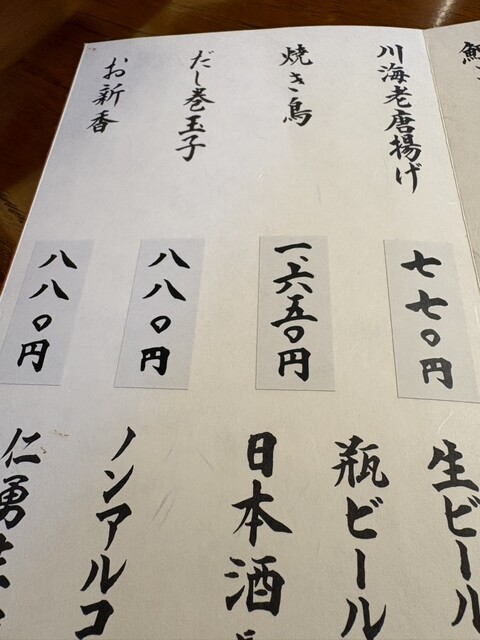 川海老唐揚げ
七七〇円
焼き鳥
一、六五〇円
だし巻玉子
八八〇円
お新香
八八〇円
生ビール
瓶ビール
日本酒
ノンアルコ
仁勇